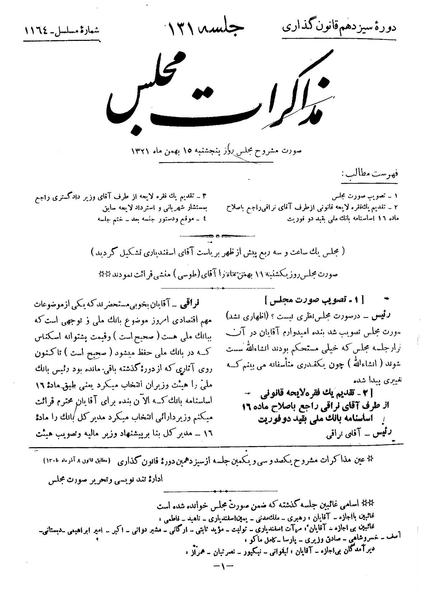 دورهٔ سیزدهم قانون گذاری
جلسه ۱۳۱
شمارهٔ مسلسل - ۱۱۶۴
مذاکرات مجلس
صورت مشروح مجلس روز پنجشنبه ۱۵ بهمن ماه ۱۳۲۱
فهرست مطالب:
۱ - تصویب صورت مجلس
۲ - تقدیم یك فقره لایحه قانونی از طرف آقای نراقی راجع باصلاح
ماده ۱۶ اساسنامه بانك ملی بقید دو فوریت
۳ - تقدیم یك فقره لایحه از طرف آقای وزیر دادگستری راجع
بمستشار شهربانی و استرداد لایحه سابق
۴ - موقع و دستور جلسه بعد - ختم جلسه
( مجلس یك ساعت و سه ربع پیش از ظهر بریاست آقای اسفندیاری تشکیل گردید )
صورت مجلس روز یکشنبه ۱۱ بهمن ماه را آقای (طوسی) منشی قرائت نمودند
[ ۱ - تصویب صورت مجلس ]
رئیس - در صورت مجلس نظری نیست ؟ (اظهاری نشد)
صورت مجلس تصویب شد بنده امیدوارم آقایان در آن
قرار جلسه مجلس که خیلی مستحکم بودند انشاءالله سست
شوند (انشاءالله) چون یکقدری متأسفانه می بینم که
تغییری پیدا شده
[ ۲ - تقدیم یك فقره لایحه قانونی
از طرف آقای نراقی راجع باصلاح ماده ۱۶
اساسنامه بانك ملی بقید دو فوریت
رئیس - آقای نراقی
نراقی - آقایان بخوبی مستحضرند که یکی از موضوعات
مهم اقتصادی امروز موضوع بانك ملی و توجهی است که
ببانك ملی هست (صحیح است) وقیمت پشتوانه اسکناس
که در بانك ملی حفظ میشود (صحیح است) تا کنون
روی آثاری که از دورهٔ گذشته باقی مانده بود رئیس بانك
ملی را هیئت وزیران انتخاب میکرد یعنی طبق مادهٔ ۱۶
اساسنامه بانك که الآن بنده برای آقایان محترم قرائت
میکنم وزیر دارائی انتخاب میکرد مدیر کل بانك را مادهٔ
۱۶ - مدیر کل بنا بر پیشنهاد وزیر مالیه و تصویب هیئت
عین مذاکرات مشروح یکصد و سی و یکمین جلسه از سیزدهمین دورهٔ قانون گذاری
ادارهٔ تند نویسی و تحریر صورت مجلس
اسامی غائبین جلسه گذشته که ضمن صورت مجلس خوانده شده است
غائبین با اجازه - آقایان :
غائبین بی اجازه - آقایان :
دیر آمدگان بی اجازه - آقایان :
-۱-